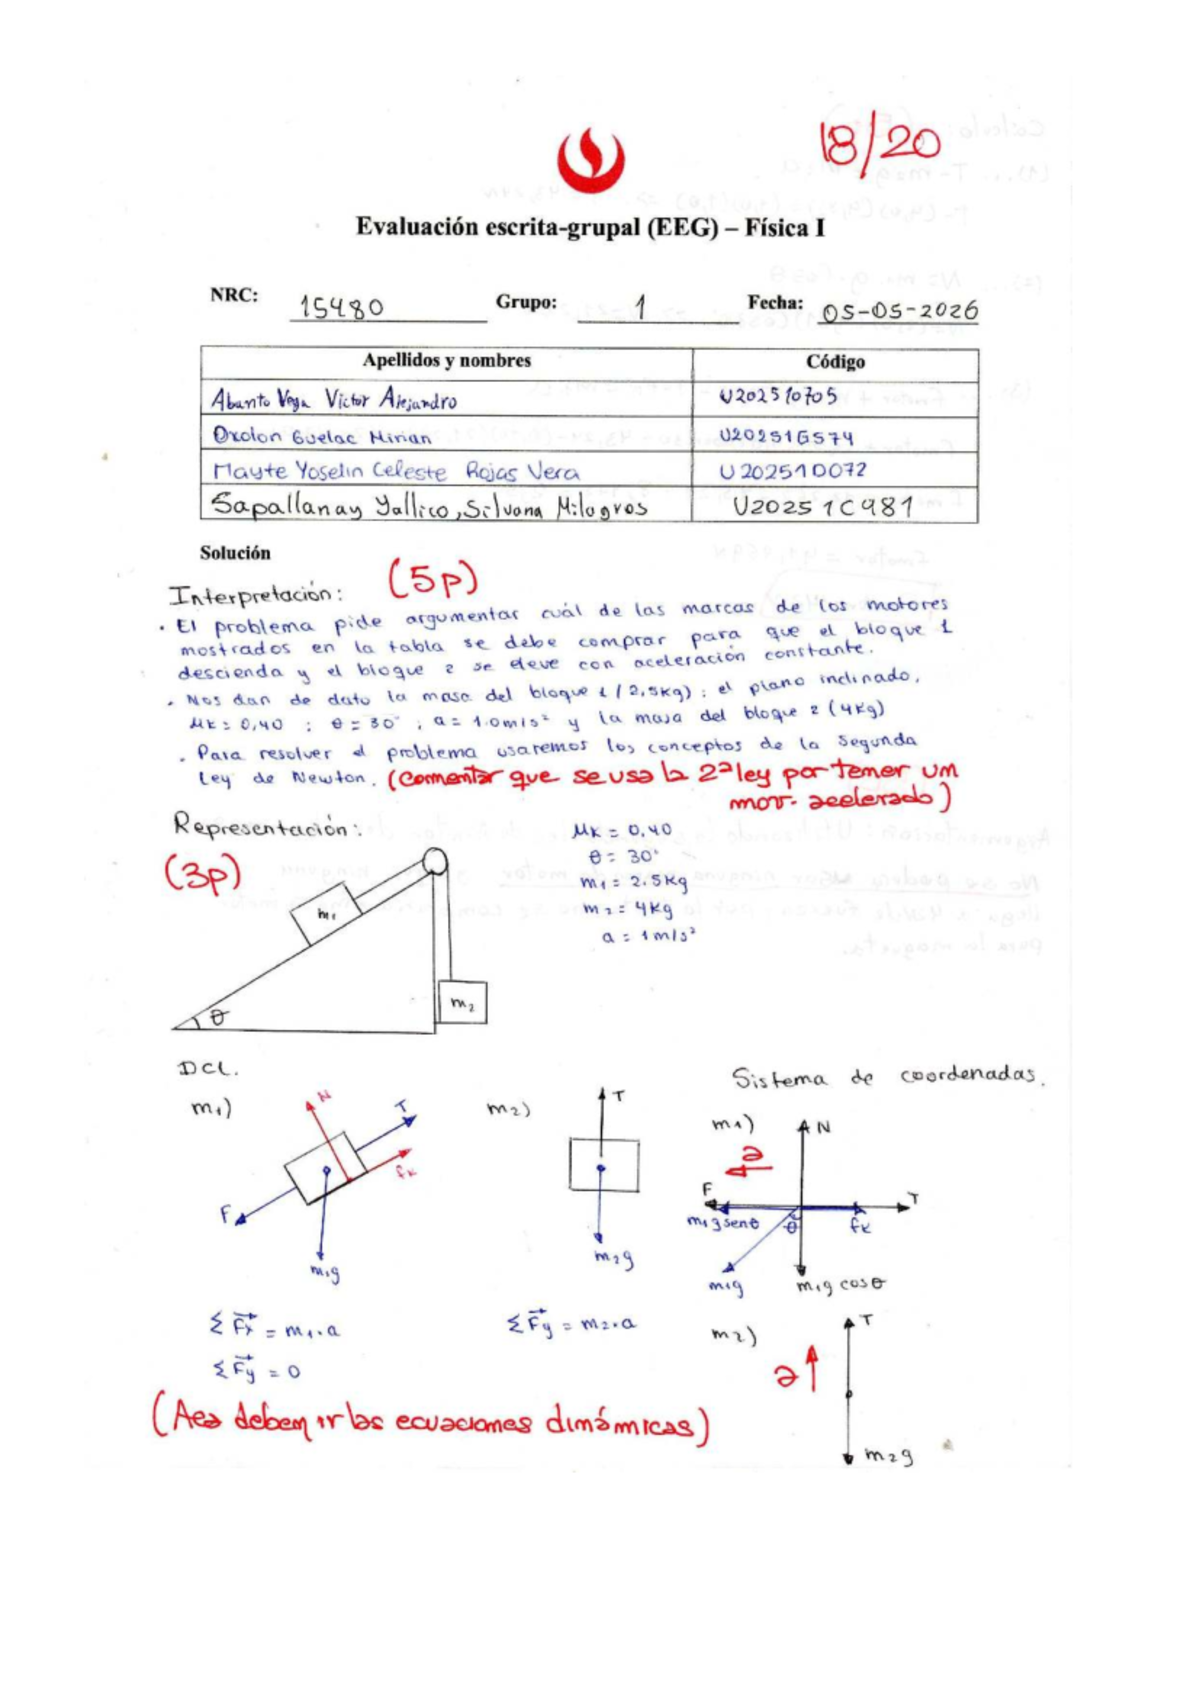 18/20
Evaluación escrita-grupal (EEG) – Física I
NRC: 15480 Grupo: 1 Fecha: 05-05-2026
Apellidos y nombres Código
Abanto Vega Victor Alejandro U202510705
Oxolon Guelac Mirian U20251G574
Mayte Yoselin Celeste Rojas Vera U202510072
Sapallanay Yallico, Silvana Milagros U20251C981
Solución
Interpretación: (5p)
• El problema pide argumentar cuál de las marcas de los motores
mostrados en la tabla se debe comprar para que el bloque 1
descienda y el bloque 2 se eleve con aceleración constante.
• Nos dan de dato la masa del bloque 1 (2,5kg); el plano inclinado,
μk = 0,40 ; θ = 30° ; a = 1.0m/s² y la masa del bloque 2 (4kg)
• Para resolver el problema usaremos los conceptos de la Segunda
Ley de Newton. (Comentar que se usa la 2ª ley por tener um
mov. acelerado)
Representación:
(3p)
μk = 0,40
θ = 30°
m1 = 2.5kg
m2 = 4kg
a = 1m/s²
m1
m2
θ
DCL.
Sistema de coordenadas.
m1) N T fk F m1g
m2) T m2g
m1) N a F T m1gsenθ θ fk m1g m1g cosθ
Σ Fx = m1.a
Σ Fy = 0
Σ Fy = m2.a
m2) T a m2g
(Acá debem ir las ecuaciones dinámicas)